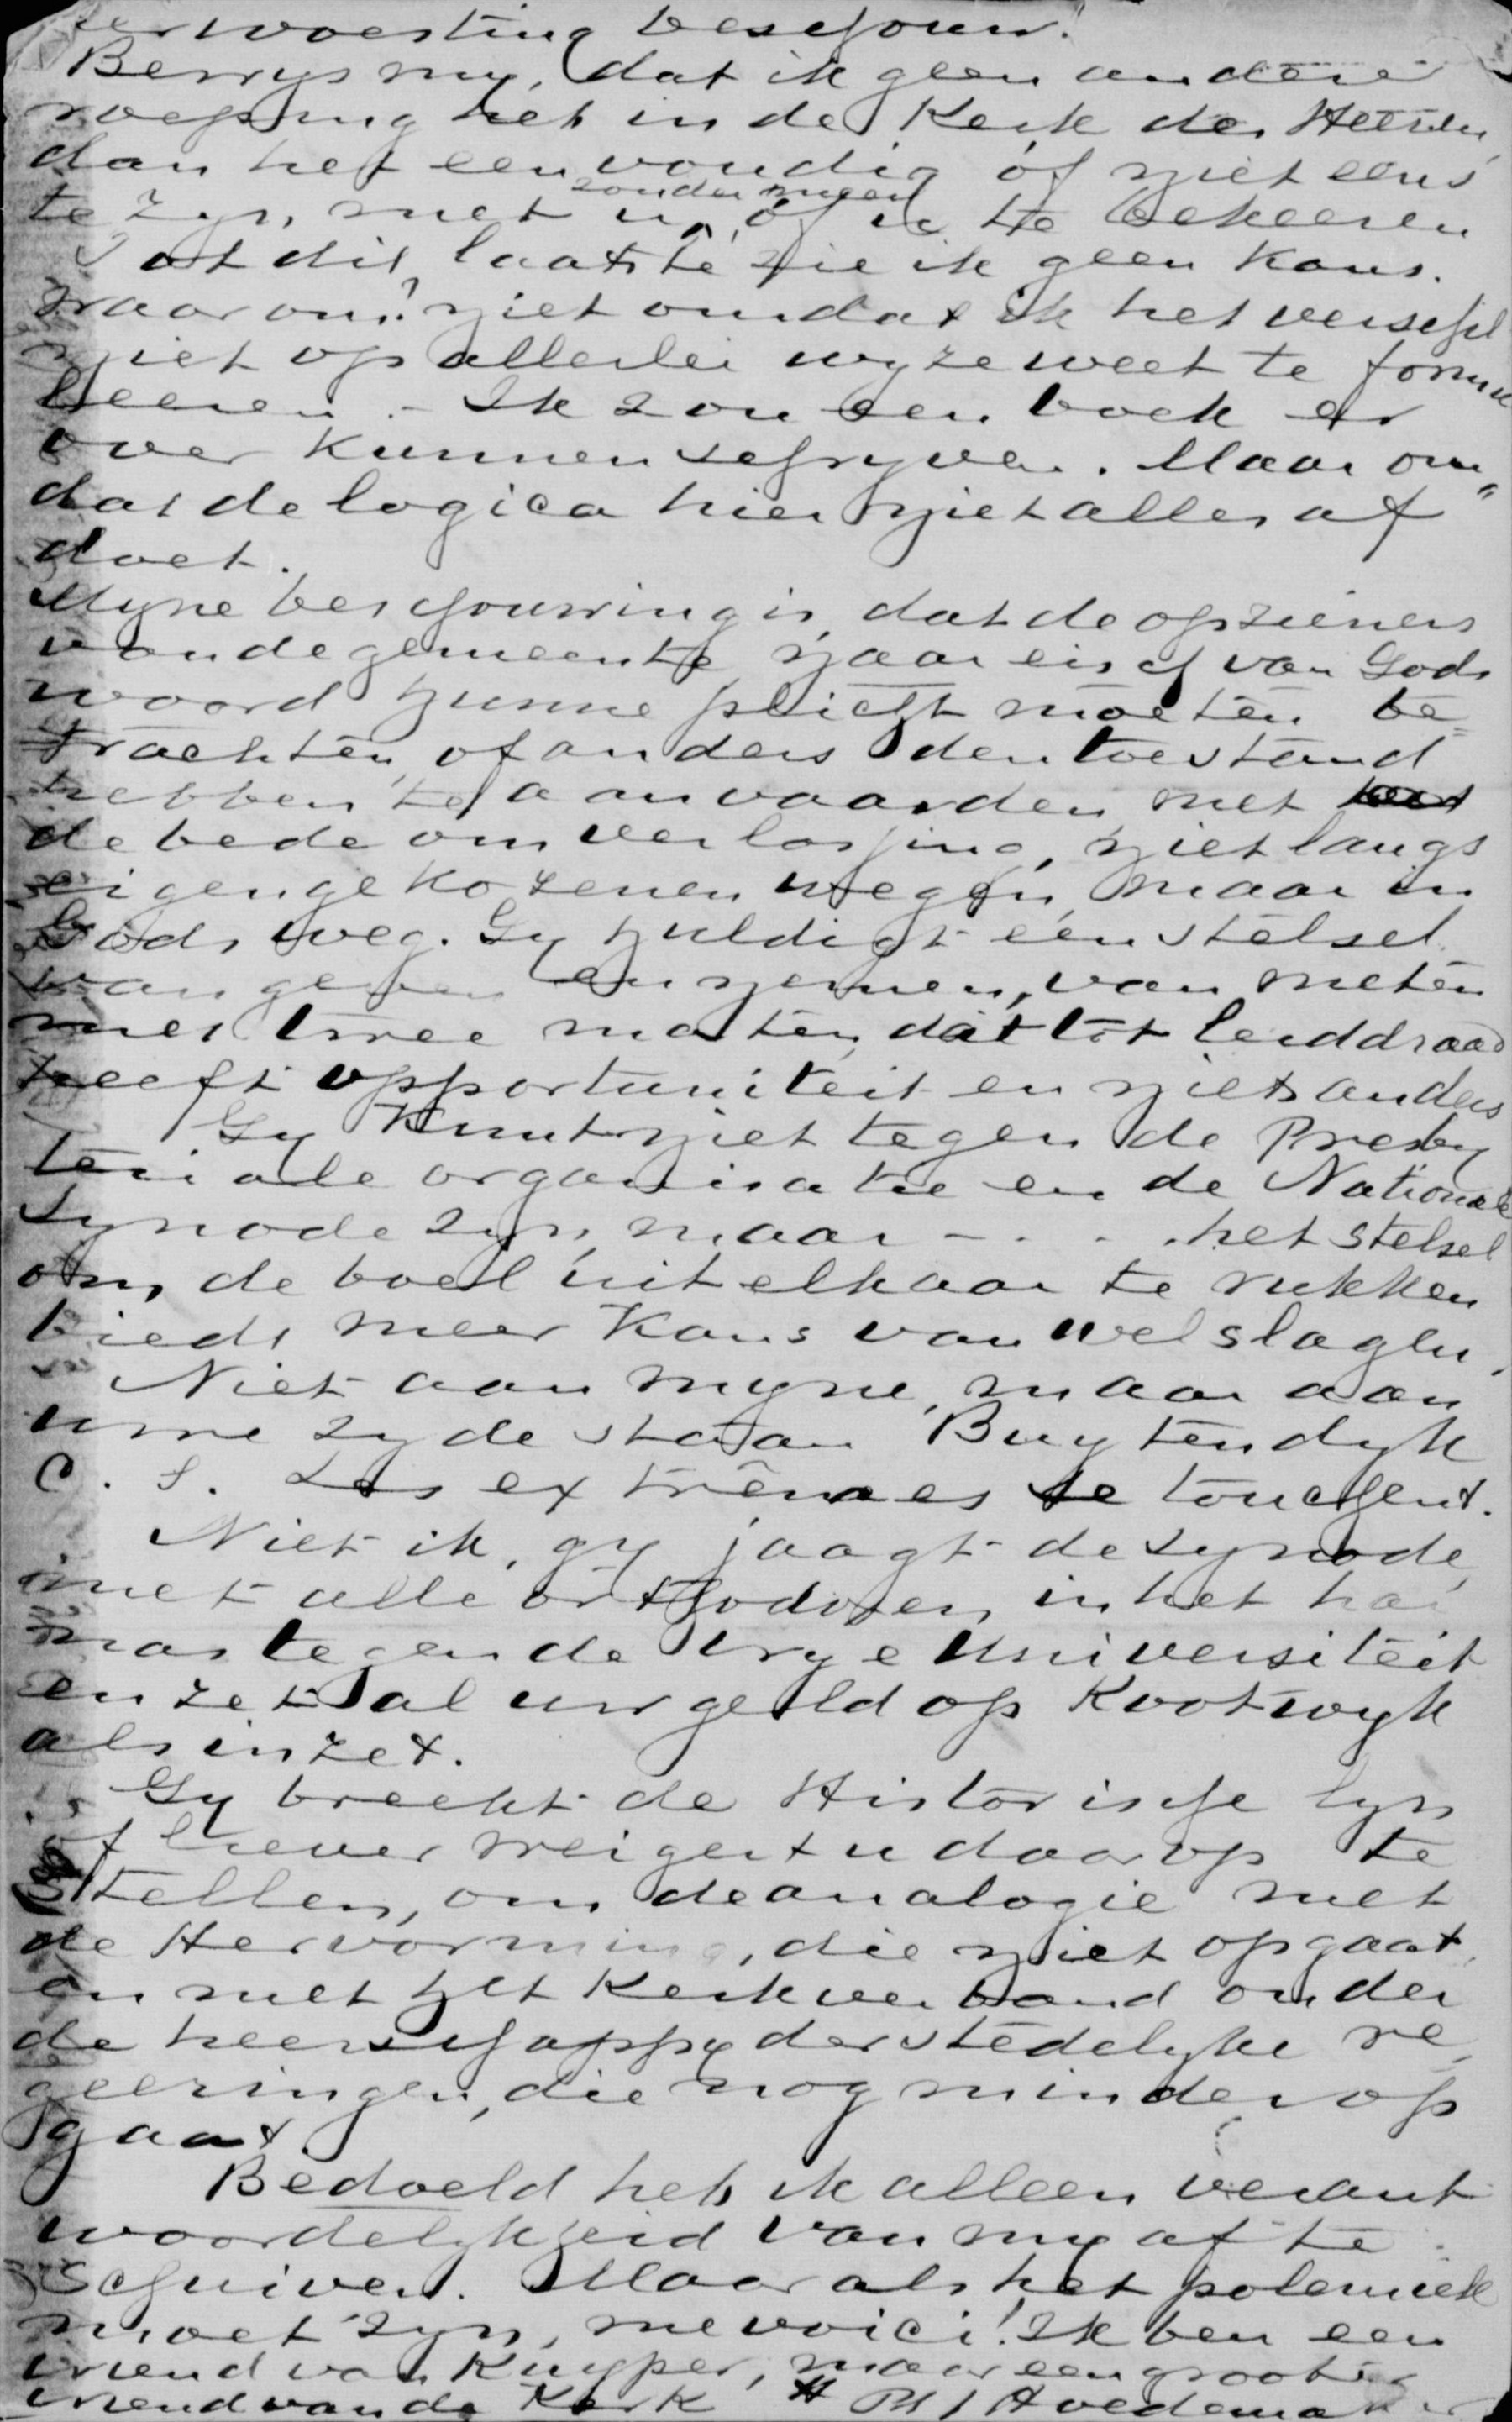 verwoesting beschouw!
Bewys my, dat ik geen andere
roeping heb in de Kerk des Heeren
dan het eenvoudig óf niet eens
te zyn met u, zonder meer óf u te bekeeren
Tot dit laatste zie ik geen kans.
Waarom? niet omdat ik het verschil
niet op allerlei wyze weet te formu
leeren. - Ik zou een boek er
over kunnen schryven. Maar om"
dat de logica hier niet alles af
doet.
Myne beschouwing is, dat de opzieners
van de gemeente naar eisch van Gods
woord hunne plicht moeten be=
trachten, of anders den toestand
hebben te aanvaarden met
de bede om verlossing, niet langs
eigengekozenen wegen, maar in
Gods weg. Gy huldigt een stelsel
van geven en nemen, van meten
met twee maten, dat tot leiddraad
heeft opportuniteit en niets anders
Gy kunt niet tegen de Presby
teriale organisatie en de Nationale
Synode zyn, maar - . . . het stelsel
om de boel uit elkaar te rukken
biedt meer kans van welslagen,
Niet aan myne, maar aan
uwe zyde staan Buytendyk
c. s. Les extrêmes se touchent.
Niet ik, gy jaagt de synode,
met alle orthodoxen in het har
nas tegen de Vrye Universiteit
en zet al uw geld op Kootwyk
als inzet.
Gy breekt de Historische lyn
of liever weigert u daarop te
stellen, om de analogie met
de Hervorming, die niet opgaat,
en met het Kerkverband onder
de heerschappy der stedelyke re
geeringen, die nog minder op
gaat.
Bedoeld heb ik alleen verant
woordelykheid van my af te
schuiven. Maar als het polemiek
moet zyn, me voici! Ik ben een
vriend van Kuyper, maar een grooter
vriend van de Kerk Ph J Hoedemaker